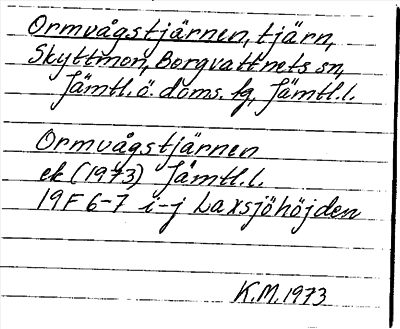 Ormvågstjärnen, tjärn,
Skyttmon, Borgvattnets sn,
Jämtl. ö. doms. tg, Jämtl. l.
Ormvågstjärnen
ek (1973) Jämtl. l.
19F 6-7 i-j Laxsjöhöjden
K.M. 1973